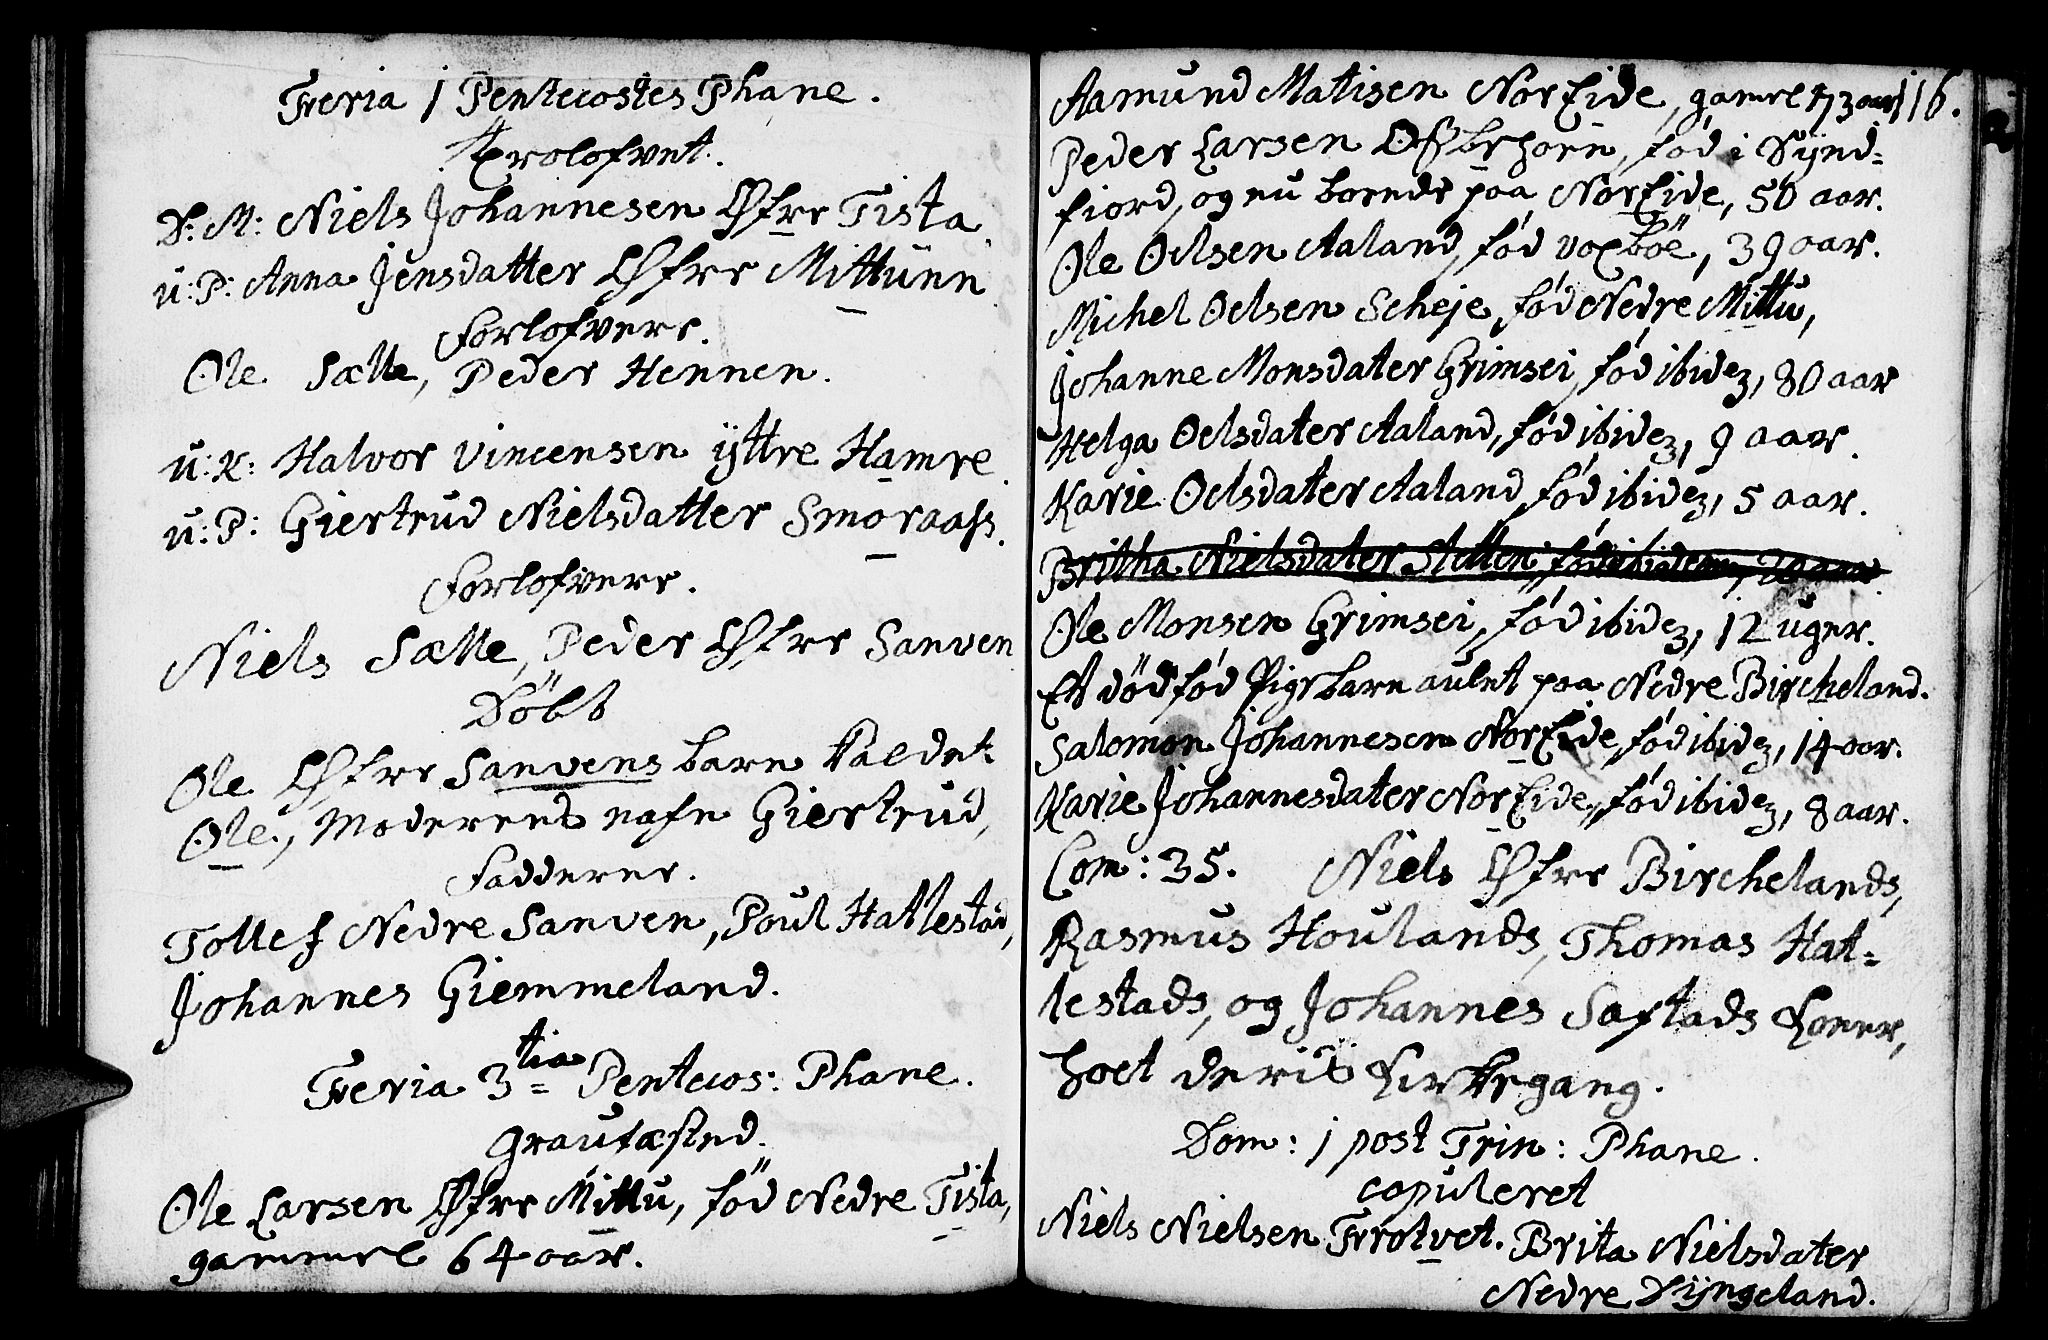 Feria 1 Pentecostes Phane.
Trolofvet.
D: M: Niels Johannesen Øfre Tista
u: P: Anna Jensdatter Øfre Mittunn
Forlofvere.
Ole Sælle, Peder Hennen.
u: K: Halvor Vincensen ÿttre Hamre
u: P: Giertrud Nielsdatter Smoraass.
Forlofvere.
Niels Sælle, Peder Øfre Sanven
Döbt
Ole Øfre Sanvens barn kaldet
Ole, Moderens nafn Giertrud,
Fadderer.
Tollef Nedre Sanven, Poul Hatlestad,
Johannes Giemmeland.
Feria 3tia Pentecos: Phane.
Grautæsted.
Ole Larsen Øfre Mittu, föd Nedre Tista,
gammel 64 aar.
116.
Aamund Matisen Noreide, gamel 73 aar
Peder Larsen föd i Sÿnd=
fiord, og nu boende paa Noreide, 50 aar.
Ole Oelsen Aaland, föd Voxböe, 39 aar.
Michel Oelsen Scheje, föd Nedre Mittu,
Johanne Monsdater Grimsei, föd ibidez, 80 aar
Helga Oelsdater Aaland, föd ibidez, 9 aar.
Karie Oelsdater Aaland, föd ibidez, 5 aar.
Britha Nielsdater Stetten, föd ibidem, 20 aar.
Ole Monsen Grimsei, föd ibidez, 12 uger.
Et dödföd Pigebarn aulet paa Nedre Bircheland.
Salomon Johannesen Noreide, föd ibidez, 14 aar.
Karie Johannesdater Noreide, föd ibidez, 8 aar.
Com: 35. Niels Øfre Birchelands,
Rasmus Houlands, Thomas Hat=
lestads, og Johannes Saftads Koner,
hoet deris Kirkegang.
Dom: 1 post Trin: Phane.
copuleret
Niels Nielsen Trotvet. Brita Nielsdater
Nedre Dÿngeland.